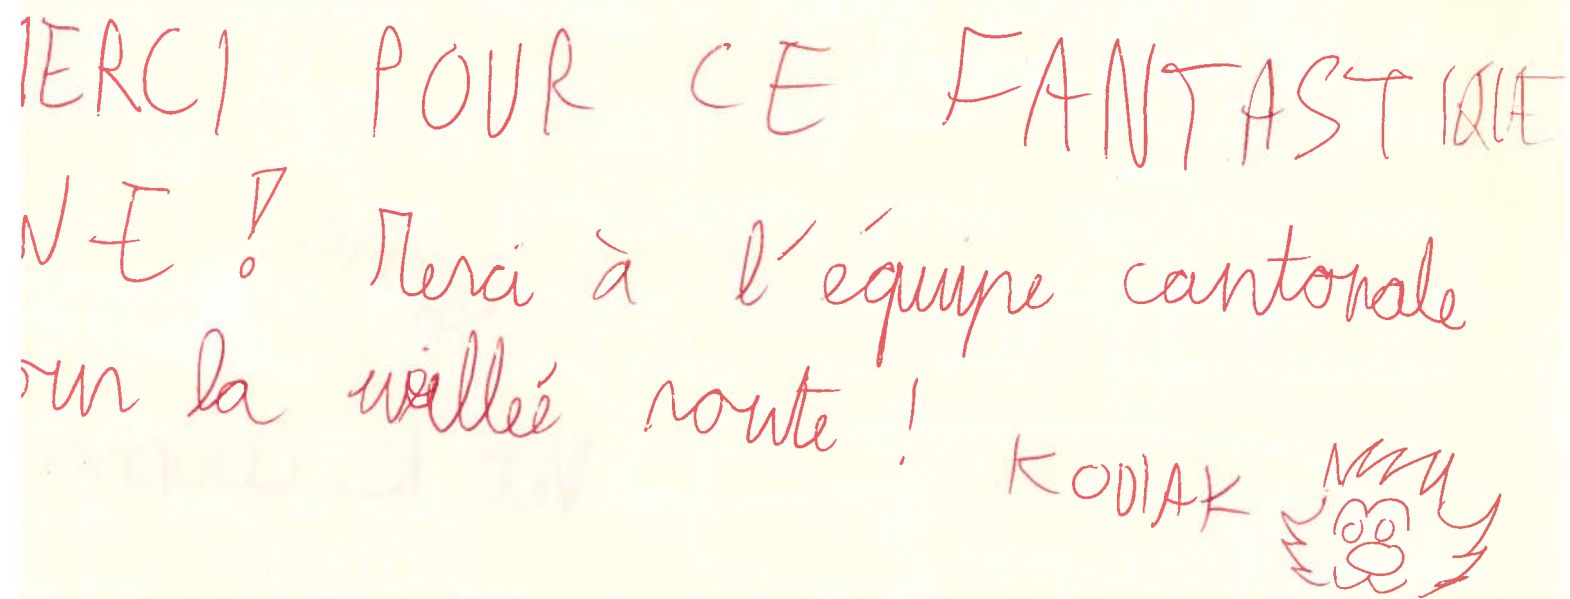 MERCI POUR CE FANTASTIQUE
NE ! Merci à l'équipe cantonale
our la veilleé route !
KODIAK